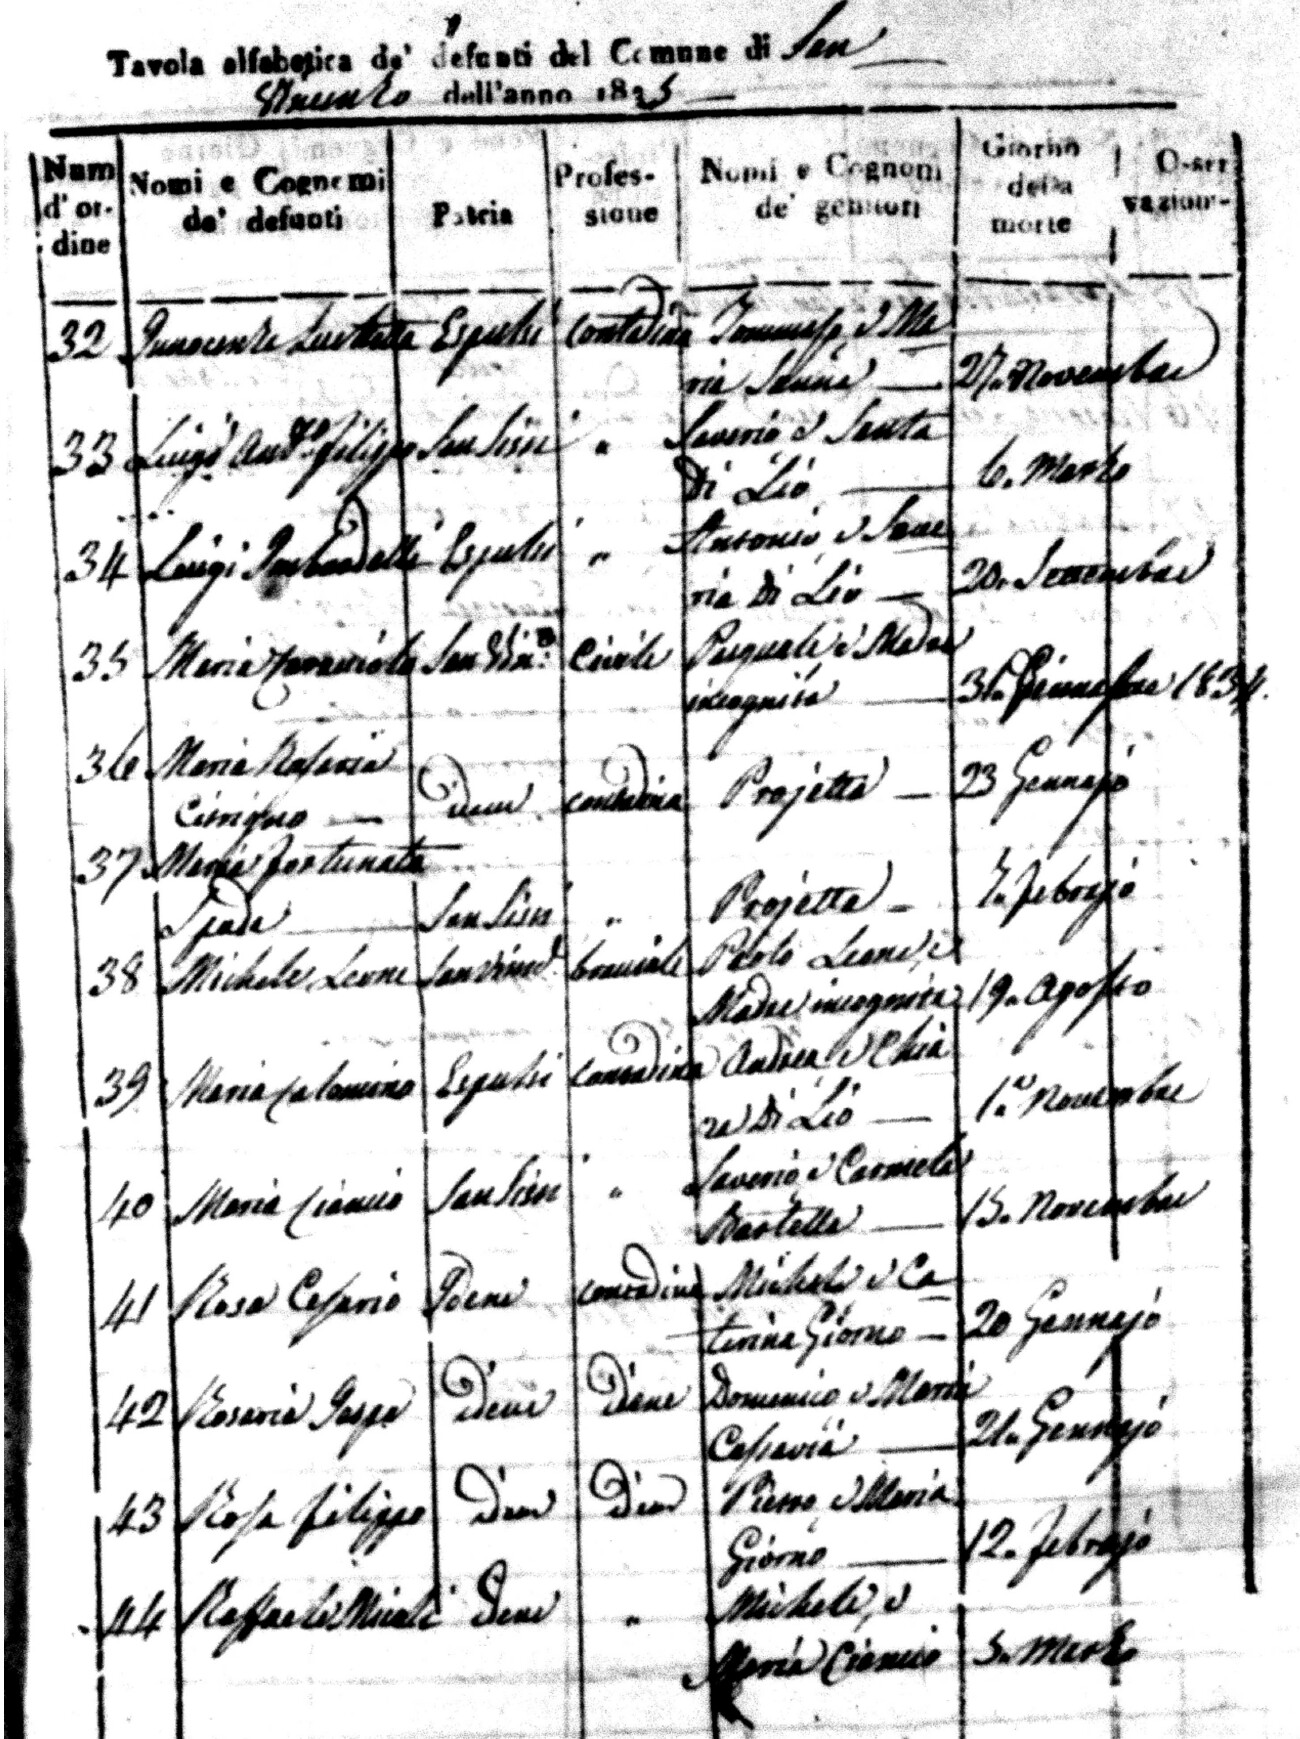 Tavola alfabetica de' defunti del Comune di San
Vincenzo dell'anno 1835
Num d'ordine
Nomi e Cognomi de' defunti
Patria
Professione
Nomi e Cognomi de' genitori
Giorno della morte
Osservazioni
32 Innocenza Espulsi contadina Tommaso e Ma
ria 27. Novembre
33 Luigi And.º Filippo San Sisti " Saverio e Santa
Di Lio 6. Marzo
34 Luigi Espulsi " Antonio e Save
ria Di Lio 20. Settembre
35 Maria San Vin.º Civile Pasquale e Madre
incognita 31. 1834.
36 Maria Rosaria
Idem contadina Projetta 23 Gennajo
37 Maria Fortunata
Spada San Sisti " Projetta Febrajo
38 Michele Leone San Vincº bracciale Paolo Leone, e
Madre incognita 19. Agosto
39 Maria Calomino Espulsi contadina Andrea e Chia
ra Di Lio 1.º Novembre
40 Maria Ciancio San Sisti " Saverio e Carmela
Bartella 15. Novembre
41 Rosa Cesario Idem contadina Michele e Ca
terina Giorno 20 Gennajo
42 Rosaria Idem Idem Domenico e Maria
Cesaria 21. Gennajo
43 Rosa Filippo Idem Idem Pietro e Maria
Giorno 12. Febrajo
44 Raffaele Micieli Idem " Michele, e
Maria Ciancio 5. Marzo